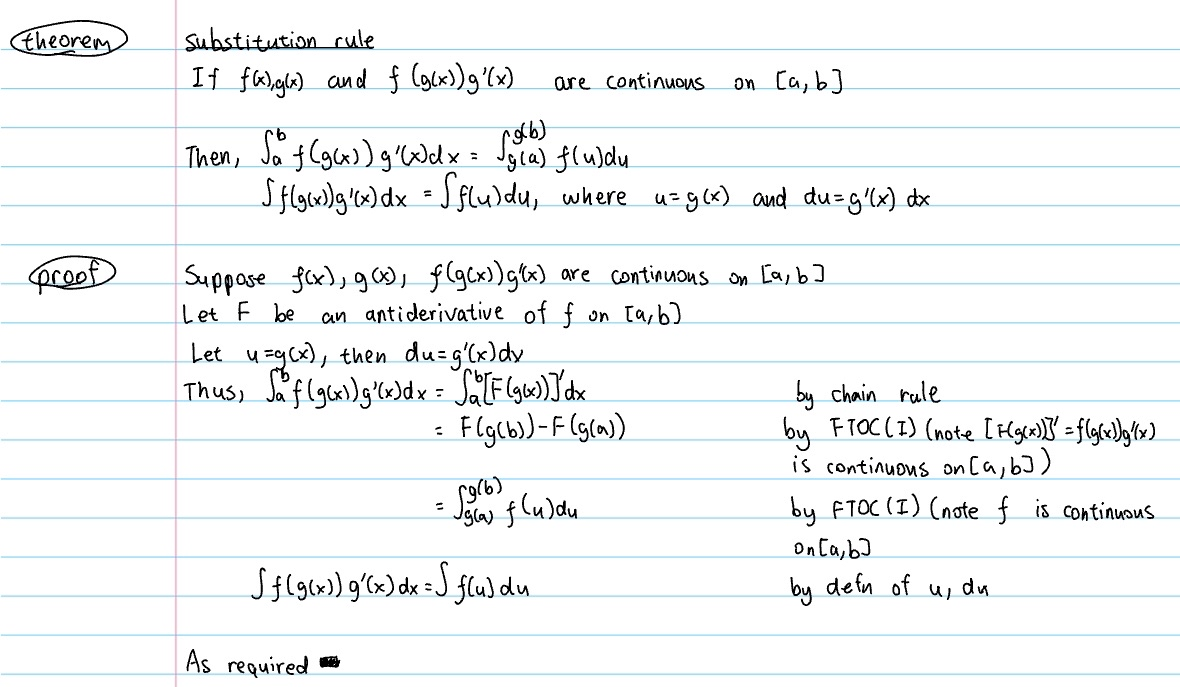 theorem substitution rule
If f(x),g(x) and f(g(x))g'(x) are continuous on [a,b]
Then, ∫_a^b f(g(x))g'(x)dx = ∫_{g(a)}^{g(b)} f(u)du
∫f(g(x))g'(x)dx = ∫f(u)du, where u=g(x) and du=g'(x)dx
proof Suppose f(x), g(x), f(g(x))g'(x) are continuous on [a,b]
Let F be an antiderivative of f on [a,b]
Let u=g(x), then du=g'(x)dx
Thus, ∫_a^b f(g(x))g'(x)dx = ∫_a^b [F(g(x))]'dx by chain rule
= F(g(b))-F(g(a)) by FTOC(I) (note [F(g(x))]'=f(g(x))g'(x)
is continuous on [a,b])
= ∫_{g(a)}^{g(b)} f(u)du by FTOC(I) (note f is continuous
on [a,b]
∫f(g(x))g'(x)dx = ∫f(u)du by defn of u, du
As required